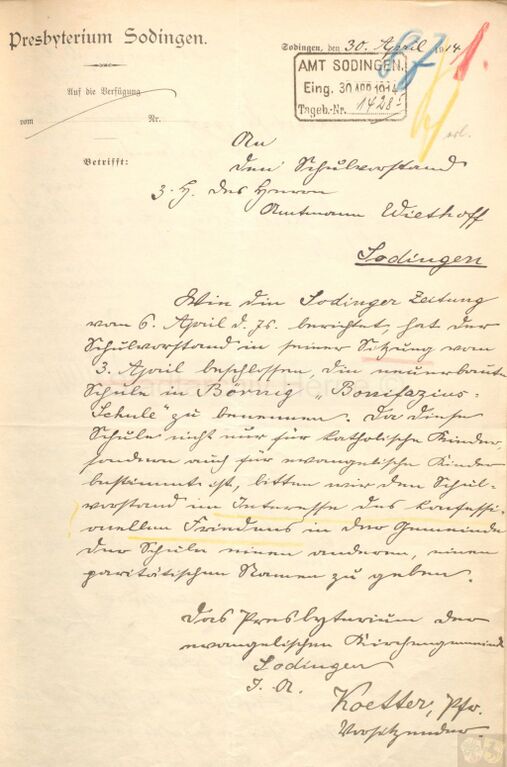 Presbyterium Sodingen.
Sodingen, den 30. April 1914
AMT SODINGEN.
Eing. 30 APR 1914
Tageb.-Nr. 1428
87
1.
erl.
Auf die Verfügung
vom Nr.
Betrifft:
An
den Schulvorstand
z. H. des Herrn
Amtmann Wiethoff
Sodingen
Wie die Sodinger Zeitung
vom 6. April d. Js. berichtet, hat der
Schulvorstand in seiner Sitzung vom
3. April beschlossen, die neuerbaute
Schule in Börnig „Bonifazius-
Schule" zu benennen. Da diese
Schule nicht nur für katholische Kinder,
sondern auch für evangelische Kinder
bestimmt ist, bitten wir den Schul-
vorstand im Interesse des konfessi-
onellen Friedens in der Gemeinde
der Schule einen anderen, einen
paritätischen Namen zu geben.
Das Presbyterium der
evangelischen Kirchengemeinde
Sodingen
I. A.
Koetter, Pfr.
Vorsitzender.